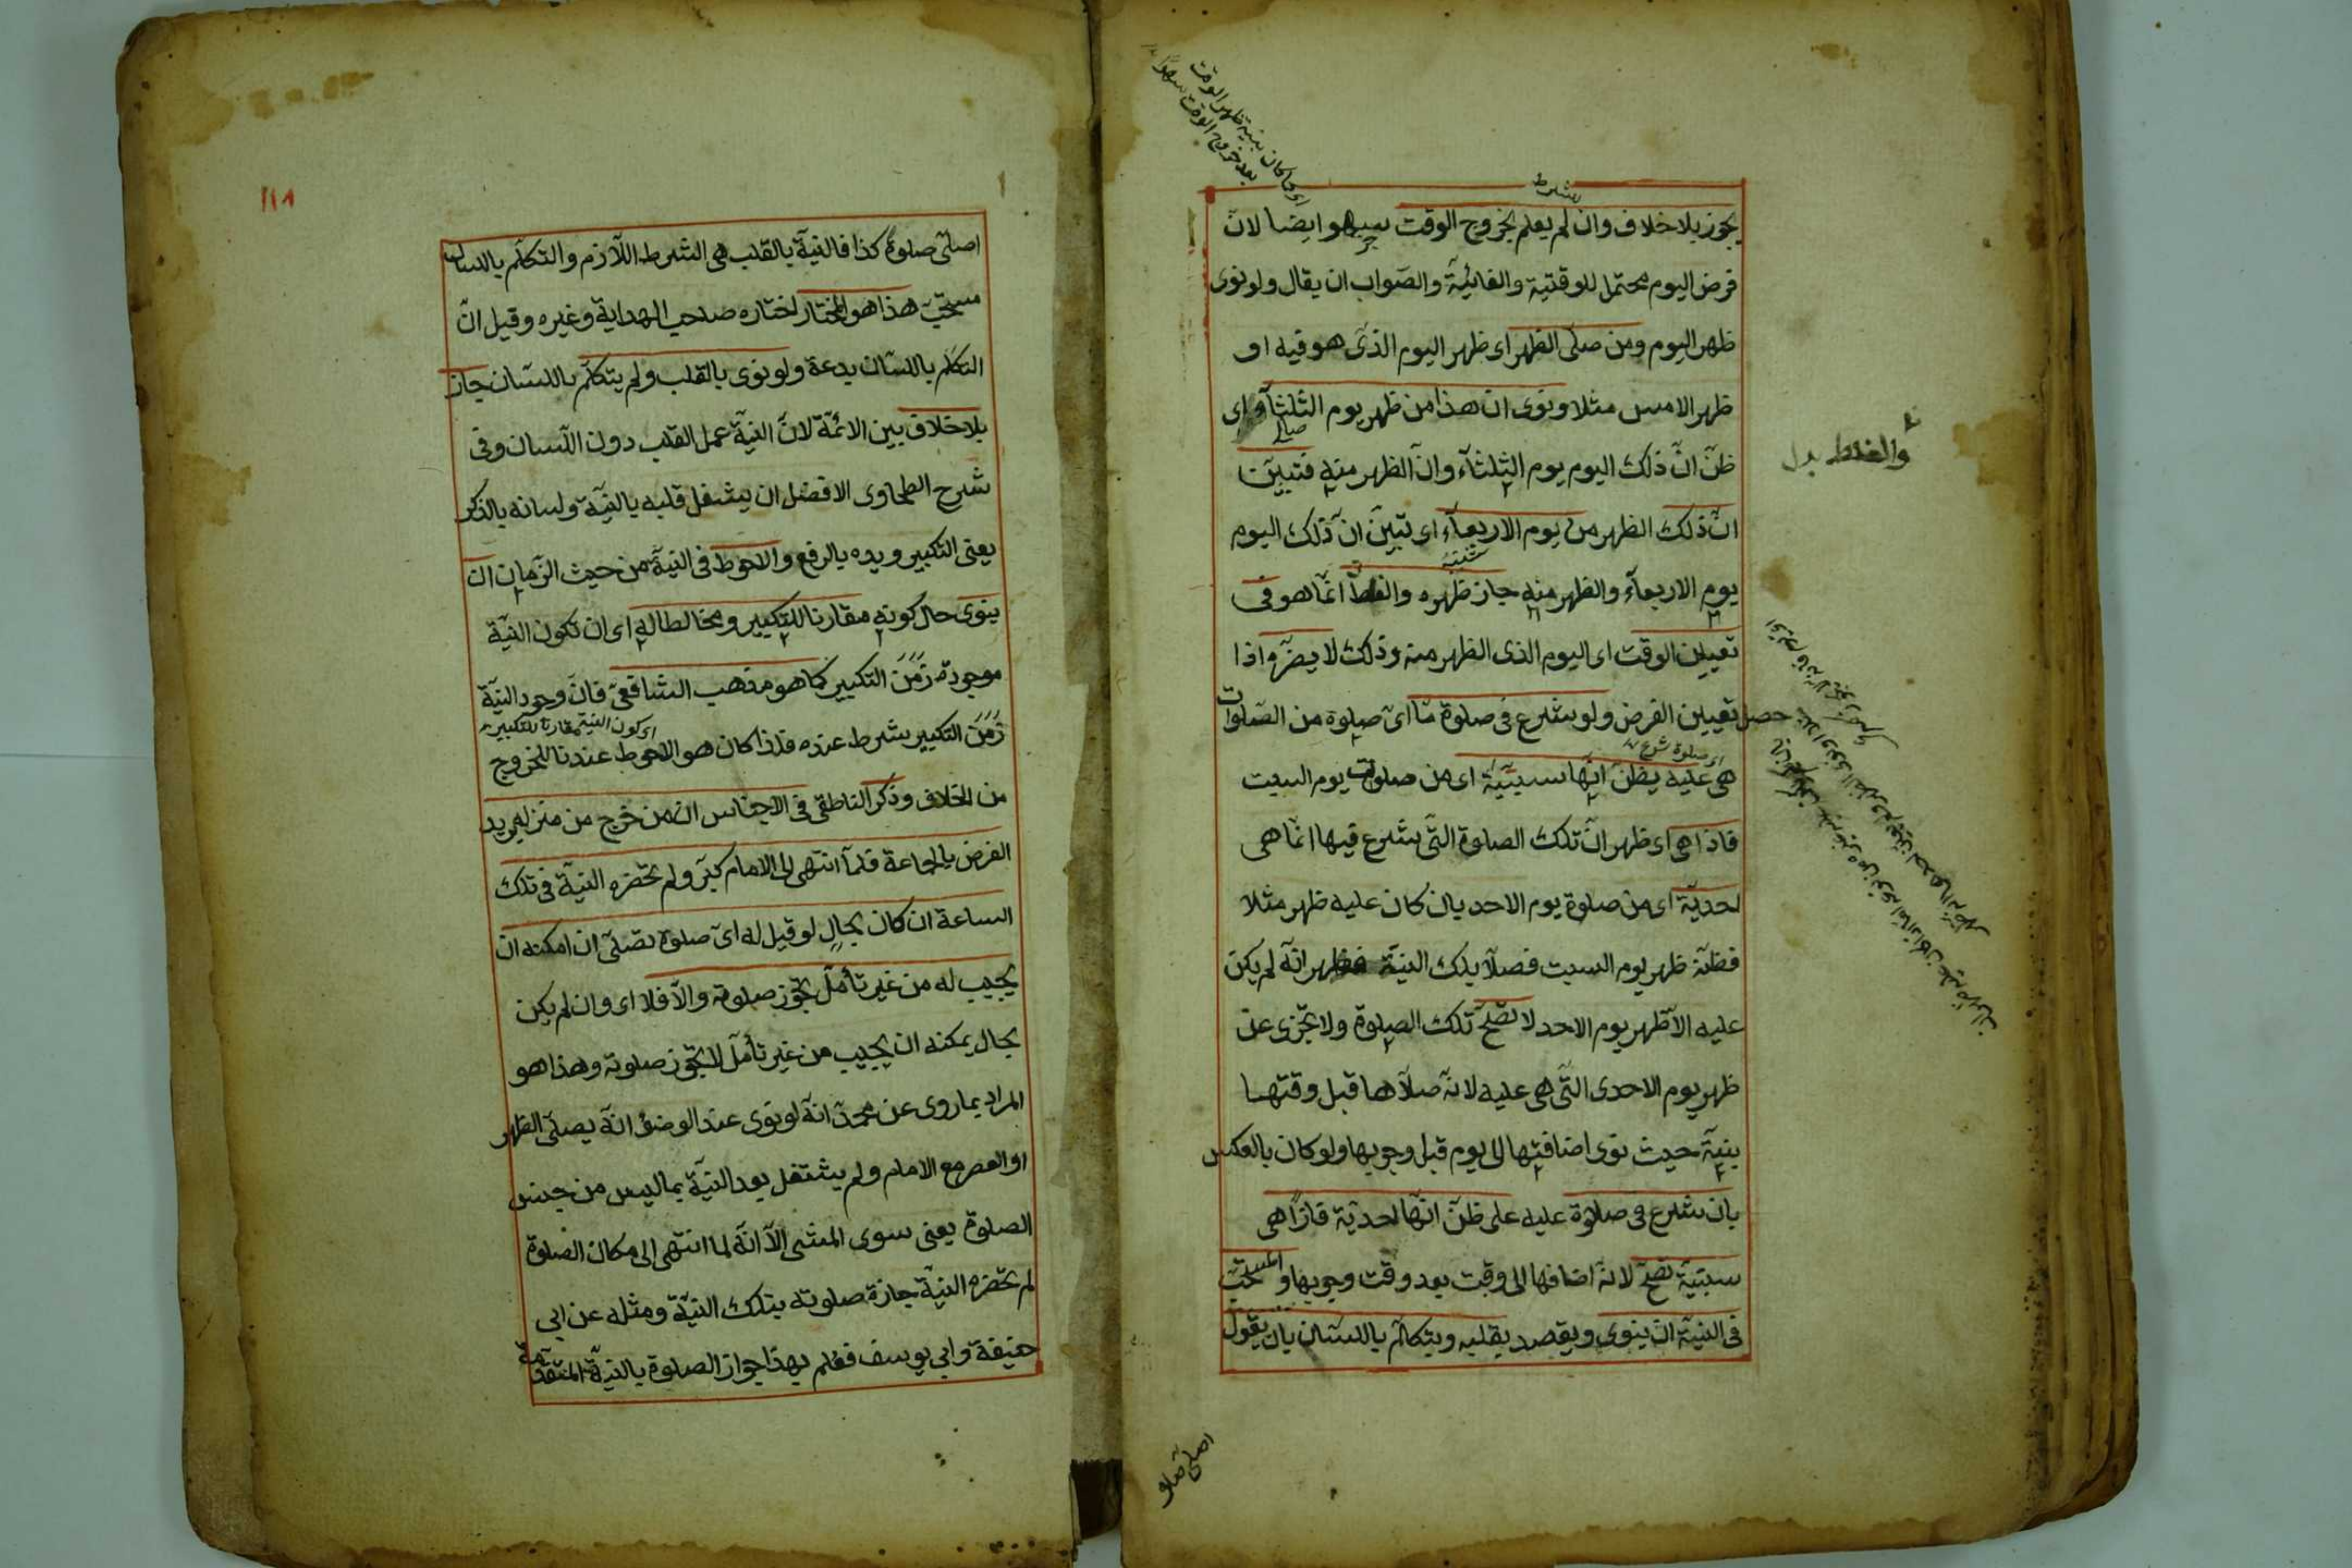 يجوز بلا خلاف وان لم يعلم بخروج الوقت فهو ايضا لان
فرض اليوم محتمل للوقتية والفائتة والصواب ان يقال ولو نوى
ظهر اليوم ومن صلى الظهر اى ظهر اليوم الذى هو فيه او
ظهر الامس مثلا ونوى ان هذا من ظهر يوم الثلثاء اى
ظن ان ذلك اليوم يوم الثلثاء وان الظهر منه فتبين
ان ذلك الظهر من يوم الاربعاء اى تبين ان ذلك اليوم
يوم الاربعاء والظهر منه جاز ظهره والغلط انما هو فى
تعيين الوقت اى اليوم الذى الظهر منه وذلك لا يضره اذا
حصل تعيين الفرض ولو شرع فى صلوة ما اى صلوة من الصلوات
اى صلوة شرع
هى عليه يظن انها سبتية اى من صلوات يوم السبت
فاذا هى اى ظهر ان تلك الصلوة التى شرع فيها انما هى
احدية اى من صلوة يوم الاحد بان كان عليه ظهر مثلا
فظنه ظهر يوم السبت فصلا بتلك النية فظهر انه لم يكن
عليه الا ظهر يوم الاحد لا تصح تلك الصلوة ولا تجزى عن
ظهر يوم الاحدى التى هى عليه لانه صلاها قبل وقتها
بنية حيث نوى اضافتها الى يوم قبل وجوبها ولو كان بالعكس
بان شرع فى صلوة عليه على ظن انها احدية فاذا هى
سبتية تصح لانه اضافها الى وقت بعد وقت وجوبها والمستحب
فى النية ان ينوى ويقصد بقلبه ويتكلم باللسان بان يقول
اصلى صلو
اى ما كان بنية ظهر الوقت
بعد خروج الوقت
والغلط بدل
١١٨
اصلى صلوة كذا فالنية بالقلب هى الشرط اللازم والتكلم باللسان
مستحب هذا هو المختار اختاره صاحب الهداية وغيره وقيل ان
التكلم باللسان بدعة ولو نوى بالقلب ولم يتكلم باللسان جاز
بلا خلاف بين الائمة لان النية عمل القلب دون اللسان وفى
شرح الطحاوى الافضل ان يشغل قلبه بالنية ولسانه بالذكر
يعنى التكبير ويده بالرفع والاحوط فى النية من حيث الزمان ان
ينوى حال كونه مقارنا للتكبير ومخالطا له اى ان تكون النية
موجودة زمن التكبير كما هو مذهب الشافعى فان وجود النية
اى كون النية مقارنا للتكبير
زمن التكبير شرط عنده فلذا كان هو الاحوط عندنا للخروج
من الخلاف وذكر الناطقى فى الاجناس ان من خرج من منزله يريد
الفرض بالجماعة فلما انتهى الى الامام كبر ولم تحضره النية فى تلك
الساعة ان كان بحال لو قيل له اى صلوة تصلى ان امكنه ان
يجيب له من غير تأمل تجوز صلوته والا فلا اى وان لم يكن
بحال يمكنه ان يجيب من غير تأمل لا تجوز صلوته وهذا هو
المراد بما روى عن محمد انه لو نوى عند الوضوء انه يصلى الظهر
او العصر مع الامام ولم يشتغل بعد النية بما ليس من جنس
الصلوة يعنى سوى المشى الا انه لما انتهى الى مكان الصلوة
لم تحضره النية جازة صلوته بتلك النية ومثله عن ابى
حنيفة وابى يوسف فعلم بهذا جواز الصلوة بالنية المتقدمة